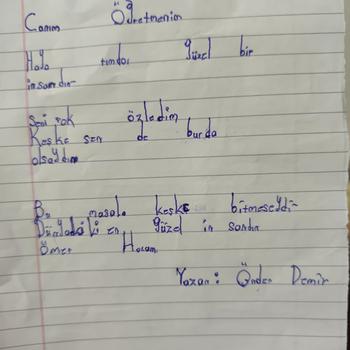 Canım Öğretmenim
Hala güzel bir
insandır
Seni çok özledim
Keske sen de burda
olsaydın
Bu masala keske bitmeseydi
Dünyadaki en güzel in sandın
Ömer Hocam
Yazan: Önder Demir